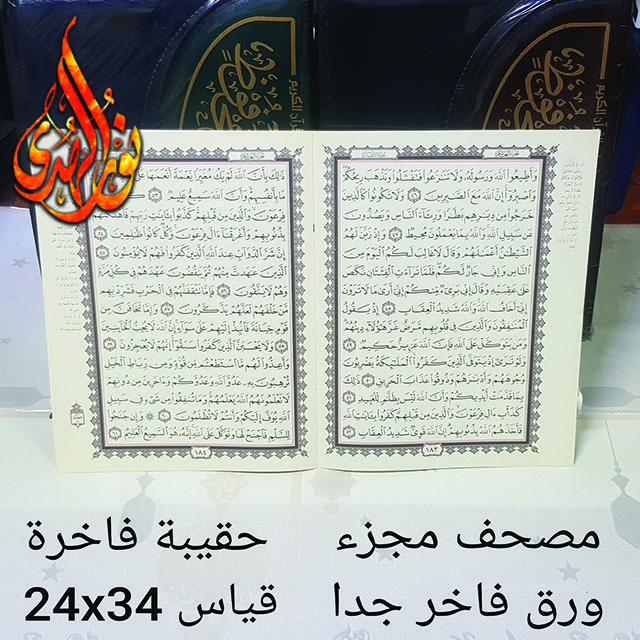 نور الهدى
القرآن الكريم
وَأَطِيعُوا اللَّهَ وَرَسُولَهُ وَلَا تَنَازَعُوا فَتَفْشَلُوا وَتَذْهَبَ رِيحُكُمْ
وَاصْبِرُوا إِنَّ اللَّهَ مَعَ الصَّابِرِينَ ٤٦ وَلَا تَكُونُوا كَالَّذِينَ
خَرَجُوا مِن دِيَارِهِم بَطَرًا وَرِئَاءَ النَّاسِ وَيَصُدُّونَ
عَن سَبِيلِ اللَّهِ وَاللَّهُ بِمَا يَعْمَلُونَ مُحِيطٌ ٤٧ وَإِذْ زَيَّنَ لَهُمُ
الشَّيْطَانُ أَعْمَالَهُمْ وَقَالَ لَا غَالِبَ لَكُمُ الْيَوْمَ مِنَ
النَّاسِ وَإِنِّي جَارٌ لَّكُمْ فَلَمَّا تَرَاءَتِ الْفِئَتَانِ نَكَصَ
عَلَىٰ عَقِبَيْهِ وَقَالَ إِنِّي بَرِيءٌ مِّنكُمْ إِنِّي أَرَىٰ مَا لَا تَرَوْنَ
إِنِّي أَخَافُ اللَّهَ وَاللَّهُ شَدِيدُ الْعِقَابِ ٤٨ إِذْ يَقُولُ
الْمُنَافِقُونَ وَالَّذِينَ فِي قُلُوبِهِم مَّرَضٌ غَرَّ هَٰؤُلَاءِ دِينُهُمْ
وَمَن يَتَوَكَّلْ عَلَى اللَّهِ فَإِنَّ اللَّهَ عَزِيزٌ حَكِيمٌ ٤٩
وَلَوْ تَرَىٰ إِذْ يَتَوَفَّى الَّذِينَ كَفَرُوا الْمَلَائِكَةُ يَضْرِبُونَ
وُجُوهَهُمْ وَأَدْبَارَهُمْ وَذُوقُوا عَذَابَ الْحَرِيقِ ٥٠ ذَٰلِكَ
بِمَا قَدَّمَتْ أَيْدِيكُمْ وَأَنَّ اللَّهَ لَيْسَ بِظَلَّامٍ لِّلْعَبِيدِ ٥١
كَدَأْبِ آلِ فِرْعَوْنَ وَالَّذِينَ مِن قَبْلِهِمْ كَفَرُوا بِآيَاتِ اللَّهِ
فَأَخَذَهُمُ اللَّهُ بِذُنُوبِهِمْ إِنَّ اللَّهَ قَوِيٌّ شَدِيدُ الْعِقَابِ ٥٢
١٨٣
ذَٰلِكَ بِأَنَّ اللَّهَ لَمْ يَكُ مُغَيِّرًا نِّعْمَةً أَنْعَمَهَا عَلَىٰ
مَا بِأَنفُسِهِمْ وَأَنَّ اللَّهَ سَمِيعٌ عَلِيمٌ ٥٣
فِرْعَوْنَ وَالَّذِينَ مِن قَبْلِهِمْ كَذَّبُوا بِآيَاتِ رَبِّهِمْ فَأَهْلَكْنَاهُم
بِذُنُوبِهِمْ وَأَغْرَقْنَا آلَ فِرْعَوْنَ وَكُلٌّ كَانُوا ظَالِمِينَ ٥٤
إِنَّ شَرَّ الدَّوَابِّ عِندَ اللَّهِ الَّذِينَ كَفَرُوا فَهُمْ لَا يُؤْمِنُونَ ٥٥
الَّذِينَ عَاهَدتَّ مِنْهُمْ ثُمَّ يَنقُضُونَ عَهْدَهُمْ فِي كُلِّ مَرَّةٍ
وَهُمْ لَا يَتَّقُونَ ٥٦ فَإِمَّا تَثْقَفَنَّهُمْ فِي الْحَرْبِ فَشَرِّدْ بِهِم
مَّنْ خَلْفَهُمْ لَعَلَّهُمْ يَذَّكَّرُونَ ٥٧ وَإِمَّا تَخَافَنَّ مِن
قَوْمٍ خِيَانَةً فَانبِذْ إِلَيْهِمْ عَلَىٰ سَوَاءٍ إِنَّ اللَّهَ لَا يُحِبُّ الْخَائِنِينَ
٥٨ وَلَا يَحْسَبَنَّ الَّذِينَ كَفَرُوا سَبَقُوا إِنَّهُمْ لَا يُعْجِزُونَ ٥٩
وَأَعِدُّوا لَهُم مَّا اسْتَطَعْتُم مِّن قُوَّةٍ وَمِن رِّبَاطِ الْخَيْلِ
تُرْهِبُونَ بِهِ عَدُوَّ اللَّهِ وَعَدُوَّكُمْ وَآخَرِينَ مِن دُونِهِمْ
لَا تَعْلَمُونَهُمُ اللَّهُ يَعْلَمُهُمْ وَمَا تُنفِقُوا مِن شَيْءٍ فِي سَبِيلِ
اللَّهِ يُوَفَّ إِلَيْكُمْ وَأَنتُمْ لَا تُظْلَمُونَ ٦٠ وَإِن جَنَحُوا
لِلسَّلْمِ فَاجْنَحْ لَهَا وَتَوَكَّلْ عَلَى اللَّهِ إِنَّهُ هُوَ السَّمِيعُ الْعَلِيمُ ٦١
١٨٤
مصحف مجزء
ورق فاخر جدا
حقيبة فاخرة
قياس 24x34